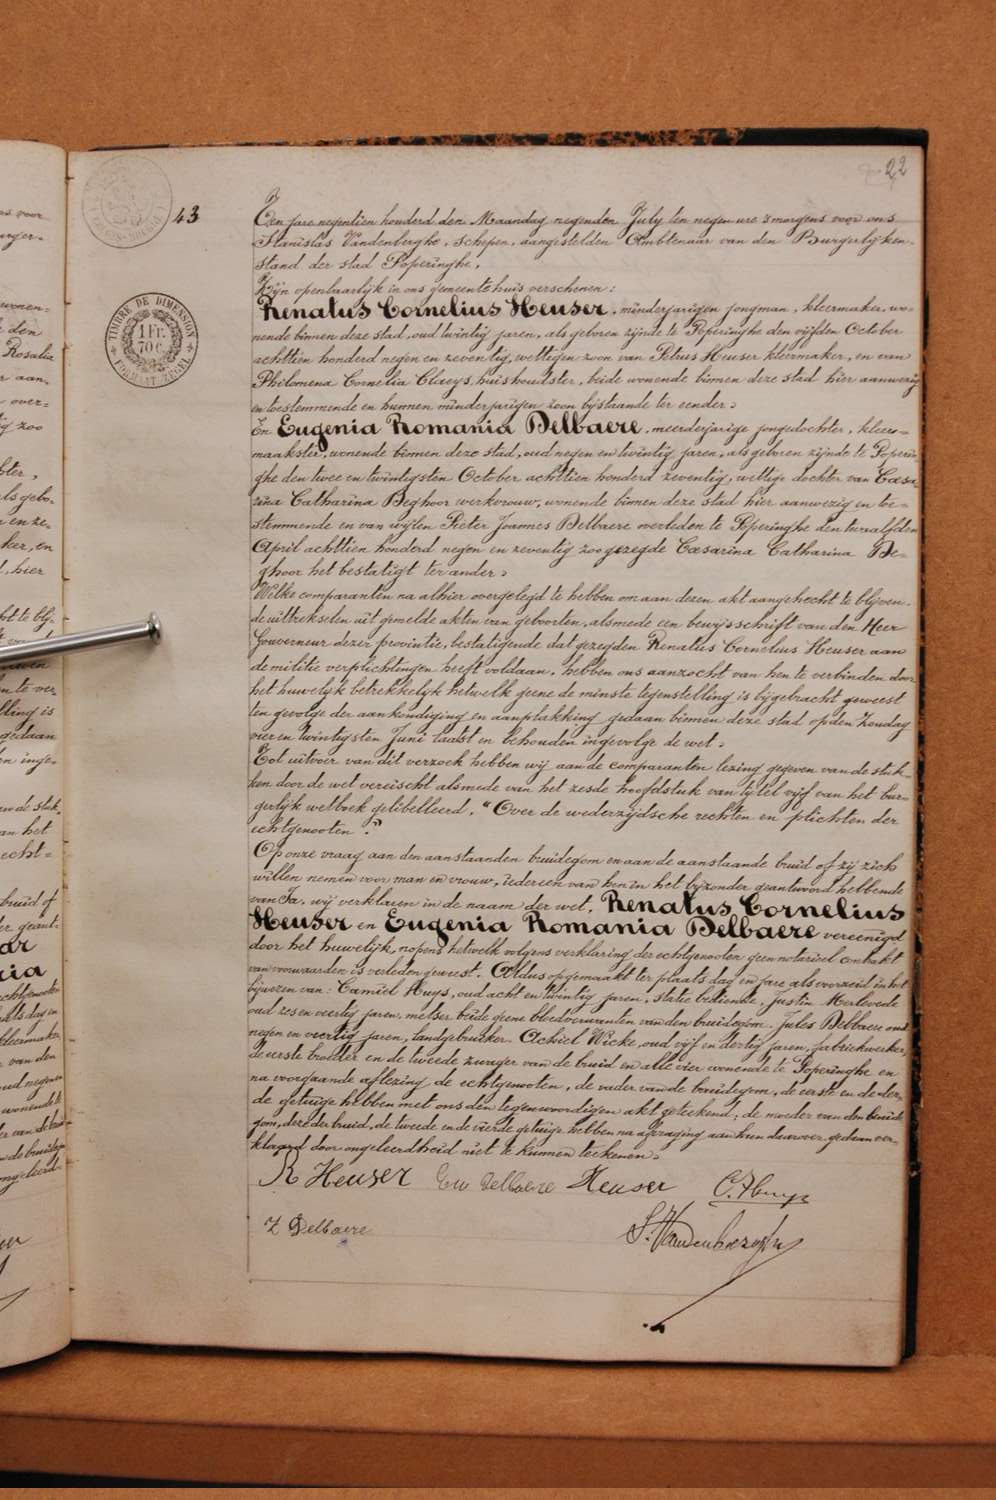 22
43
TIMBRE DE DIMENSION
1 Fr.
70 c.
FORMAAT ZEGEL
Een jare negentien honderd den Maandag negenden July ten negen ure 's morgens voor ons
Stanislas Vandenberghe, Schepen, aangestelden Ambtenaar van den Burgerlijken-
stand der stad Poperinghe,
Zijn openlaarlijk in ons gemeentehuis verschenen:
Renatus Cornelius Heuser, minderjarigen jongman, kleermaker, wo-
nende binnen deze stad, oud twintig jaren, als geboren zijnde te Poperinghe den vijfden October
achttien honderd negen en zeventig, wettigen zoon van Petrus Heuser kleermaker, en van
Philomena Cornelia Claeys, huishoudster, beide wonende binnen deze stad hier aanwezig
en toestemmende en hunnen minderjarigen zoon bijstaande ter eender;
En Eugenia Romania Delbaere, meerderjarige jongedochter, kleer-
maakster, wonende binnen deze stad, oud negen en twintig jaren, als geboren zijnde te Poperin-
ghe den twee en twintigsten October achttien honderd zeventig, wettige dochter van Cæsa-
rina Catharina Beghoor werkvrouw, wonende binnen deze stad hier aanwezig en toe-
stemmende en van wijlen Pieter Joannes Delbaere overleden te Poperinghe den twaalfden
April achttien honderd negen en zeventig zoo gezegde Cæsarina Catharina Be-
ghoor het bestatigt ter ander;
Welke comparanten na alhier overgelegd te hebben om aan dezen akt aangehecht te blijven,
de uittrekselen uit gemelde akten van geboorten, alsmede een bewijsschrift van den Heer
Gouverneur dezer provintie, bestatigende dat gezegden Renatus Cornelius Heuser aan
de militie verplichtingen heeft voldaan, hebben ons aanzocht van hen te verbinden door
het huwelijk betrekkelijk hetwelk geene de minste tegenstelling is bijgebracht geweest
ten gevolge der aankondiging en aanplakking gedaan binnen deze stad op den Zondag
vier en twintigsten Juni laatst en behouden ingevolge de wet;
Tot uitvoer van dit verzoek hebben wij aan de comparanten lezing gegeven van de stuk-
ken door de wet vereischt alsmede van het zesde hoofdstuk van tijtel vijf van het bur-
gerlijk wetboek gelibelleerd, "Over de wederzijdsche rechten en plichten der
echtgenooten."
Op onze vraag aan den aanstaanden bruidegom en aan de aanstaande bruid of zij zich
willen nemen voor man en vrouw, iedereen van hen in het bijzonder geantwoord hebbende
van Ja, wij verklaren in de naam der wet, Renatus Cornelius
Heuser en Eugenia Romania Delbaere vereenigd
door het huwelijk, nopens hetwelk volgens verklaring der echtgenooten geen notarieel contrakt
van voorwaarden is verleden geweest. Aldus opgemaakt ter plaats dag en jare als voorzeid in het
bijwezen van: Camiel Huys, oud acht en twintig jaren, statie bediende, Justin Merlevede
oud zes en veertig jaren, metser beide geene bloedverwanten van den bruidegom, Jules Delbaere oud
negen en veertig jaren, landgebruiker Achiel Wicke, oud vijf en dertig jaren, fabriekwerker,
de eerste broeder en de tweede zwager van de bruid en alle vier wonende te Poperinghe en
na voorgaande aflezing de echtgenooten, de vader van de bruidegom, de eerste en de der-
de getuige hebben met ons den tegenwoordigen akt geteekend; de moeder van den bruide-
gom, deze der bruid, de tweede en de vierde getuige hebben na afvraging aan hun daarover gedaan ver-
klaard door ongeleerdheid niet te kunnen teekenen.
R Heuser Eu Delbaere Heuser C. Huys
Z Delbaere S. Vandenberghe